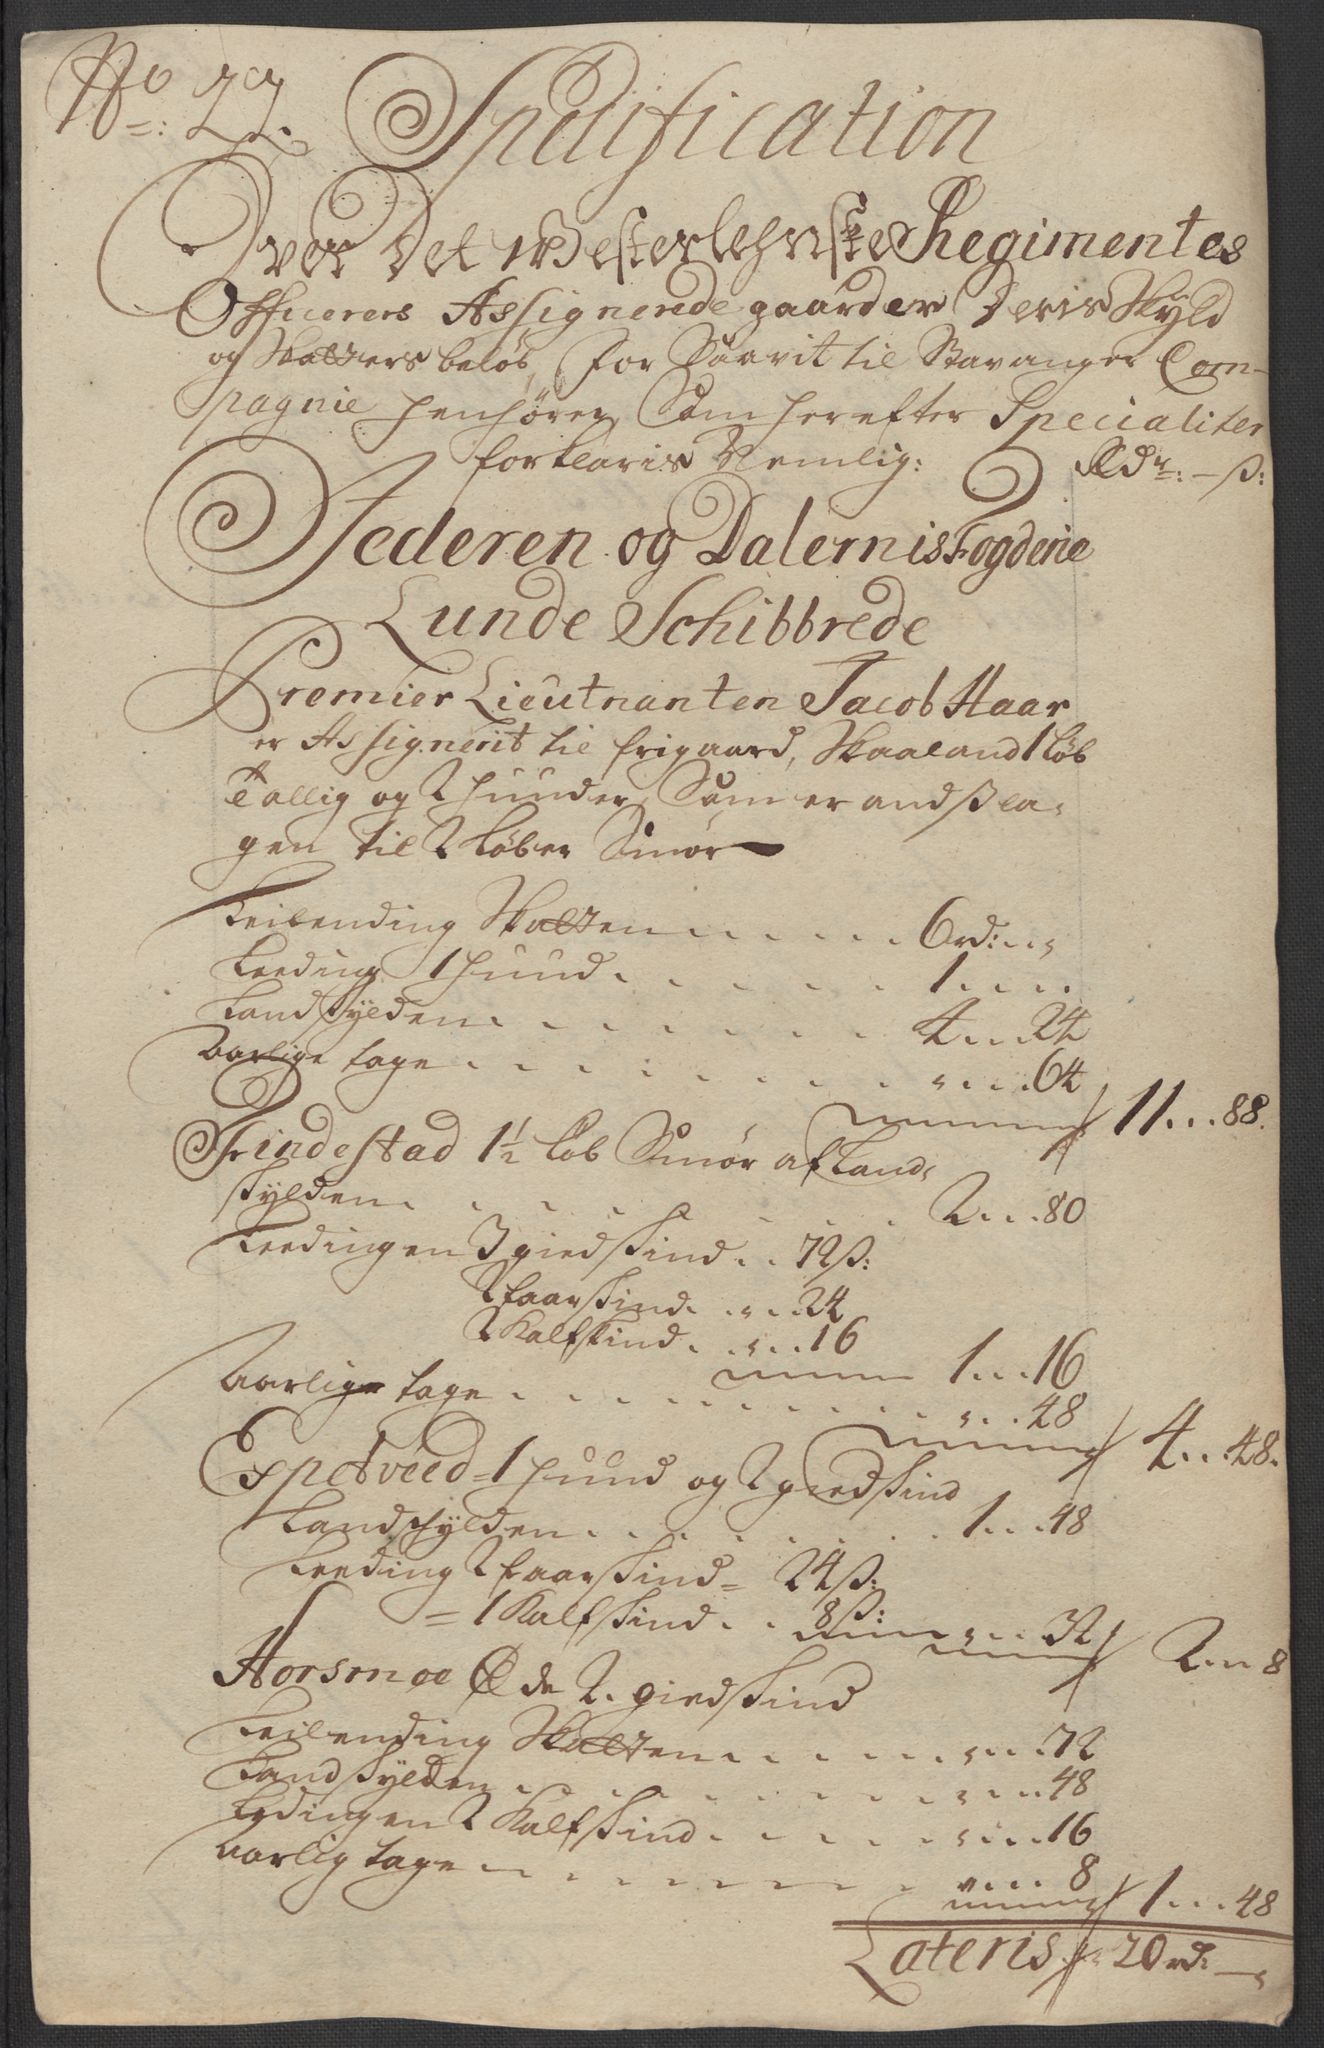 No: 27.
Specification
Over Det Westerlehnske Regimentes
Officerers Assignerede gaarder Deris Skyld
og Skatters beløb, for Saavit til Stavanger Com-
pagnie henhører, Som herefter Specialiter
forklaris Nemlig: Rdr: - ß:
Jederen og Dalernis Fogderie
Lunde Schibbrede
Premier Lieutnanten Jacob Haar
er Assignerit til frigaard, Skaaland 1 løb
Tallig og 2 huuder, Som er andsla-
gen til 2 Løber Smør
Leilending Skatten . . . . . 6 rd: . .
Leeding 1 huud . . . . . 1 . . . .
Landskylden . . . . . 4 . . . 24
Aarlige tage . . . . . 64
11 . . . 88.
Trindestad 1½ Løb Smør af Land-
skylden . . . . . 2 . . . 80
Leedingen 3 giedskind . . 72 ß:
2 faarskind . . . . 24
2 Kalfskind . . . . 16
1 . . . 16
Aarlige tage . . . . . 48
4 . . . 48.
Espetveed = 1 huud og 2 giedskind
Landskylden . . . . . 1 . . . 48
Leeding 2 faarskind = 24 ß:
= 1 Kalfskind . . 8 ß: . . . 32
2 . . 8
Horsmoe Øde 2. giedskind
Leilending Skatten . . . . . 72
Landskylden . . . . . 48
Ledingen 2 Kalfskind . . . . . 16
Aarlig tage . . . . . 8
1 . . . 48
Lateris 20 rd: -